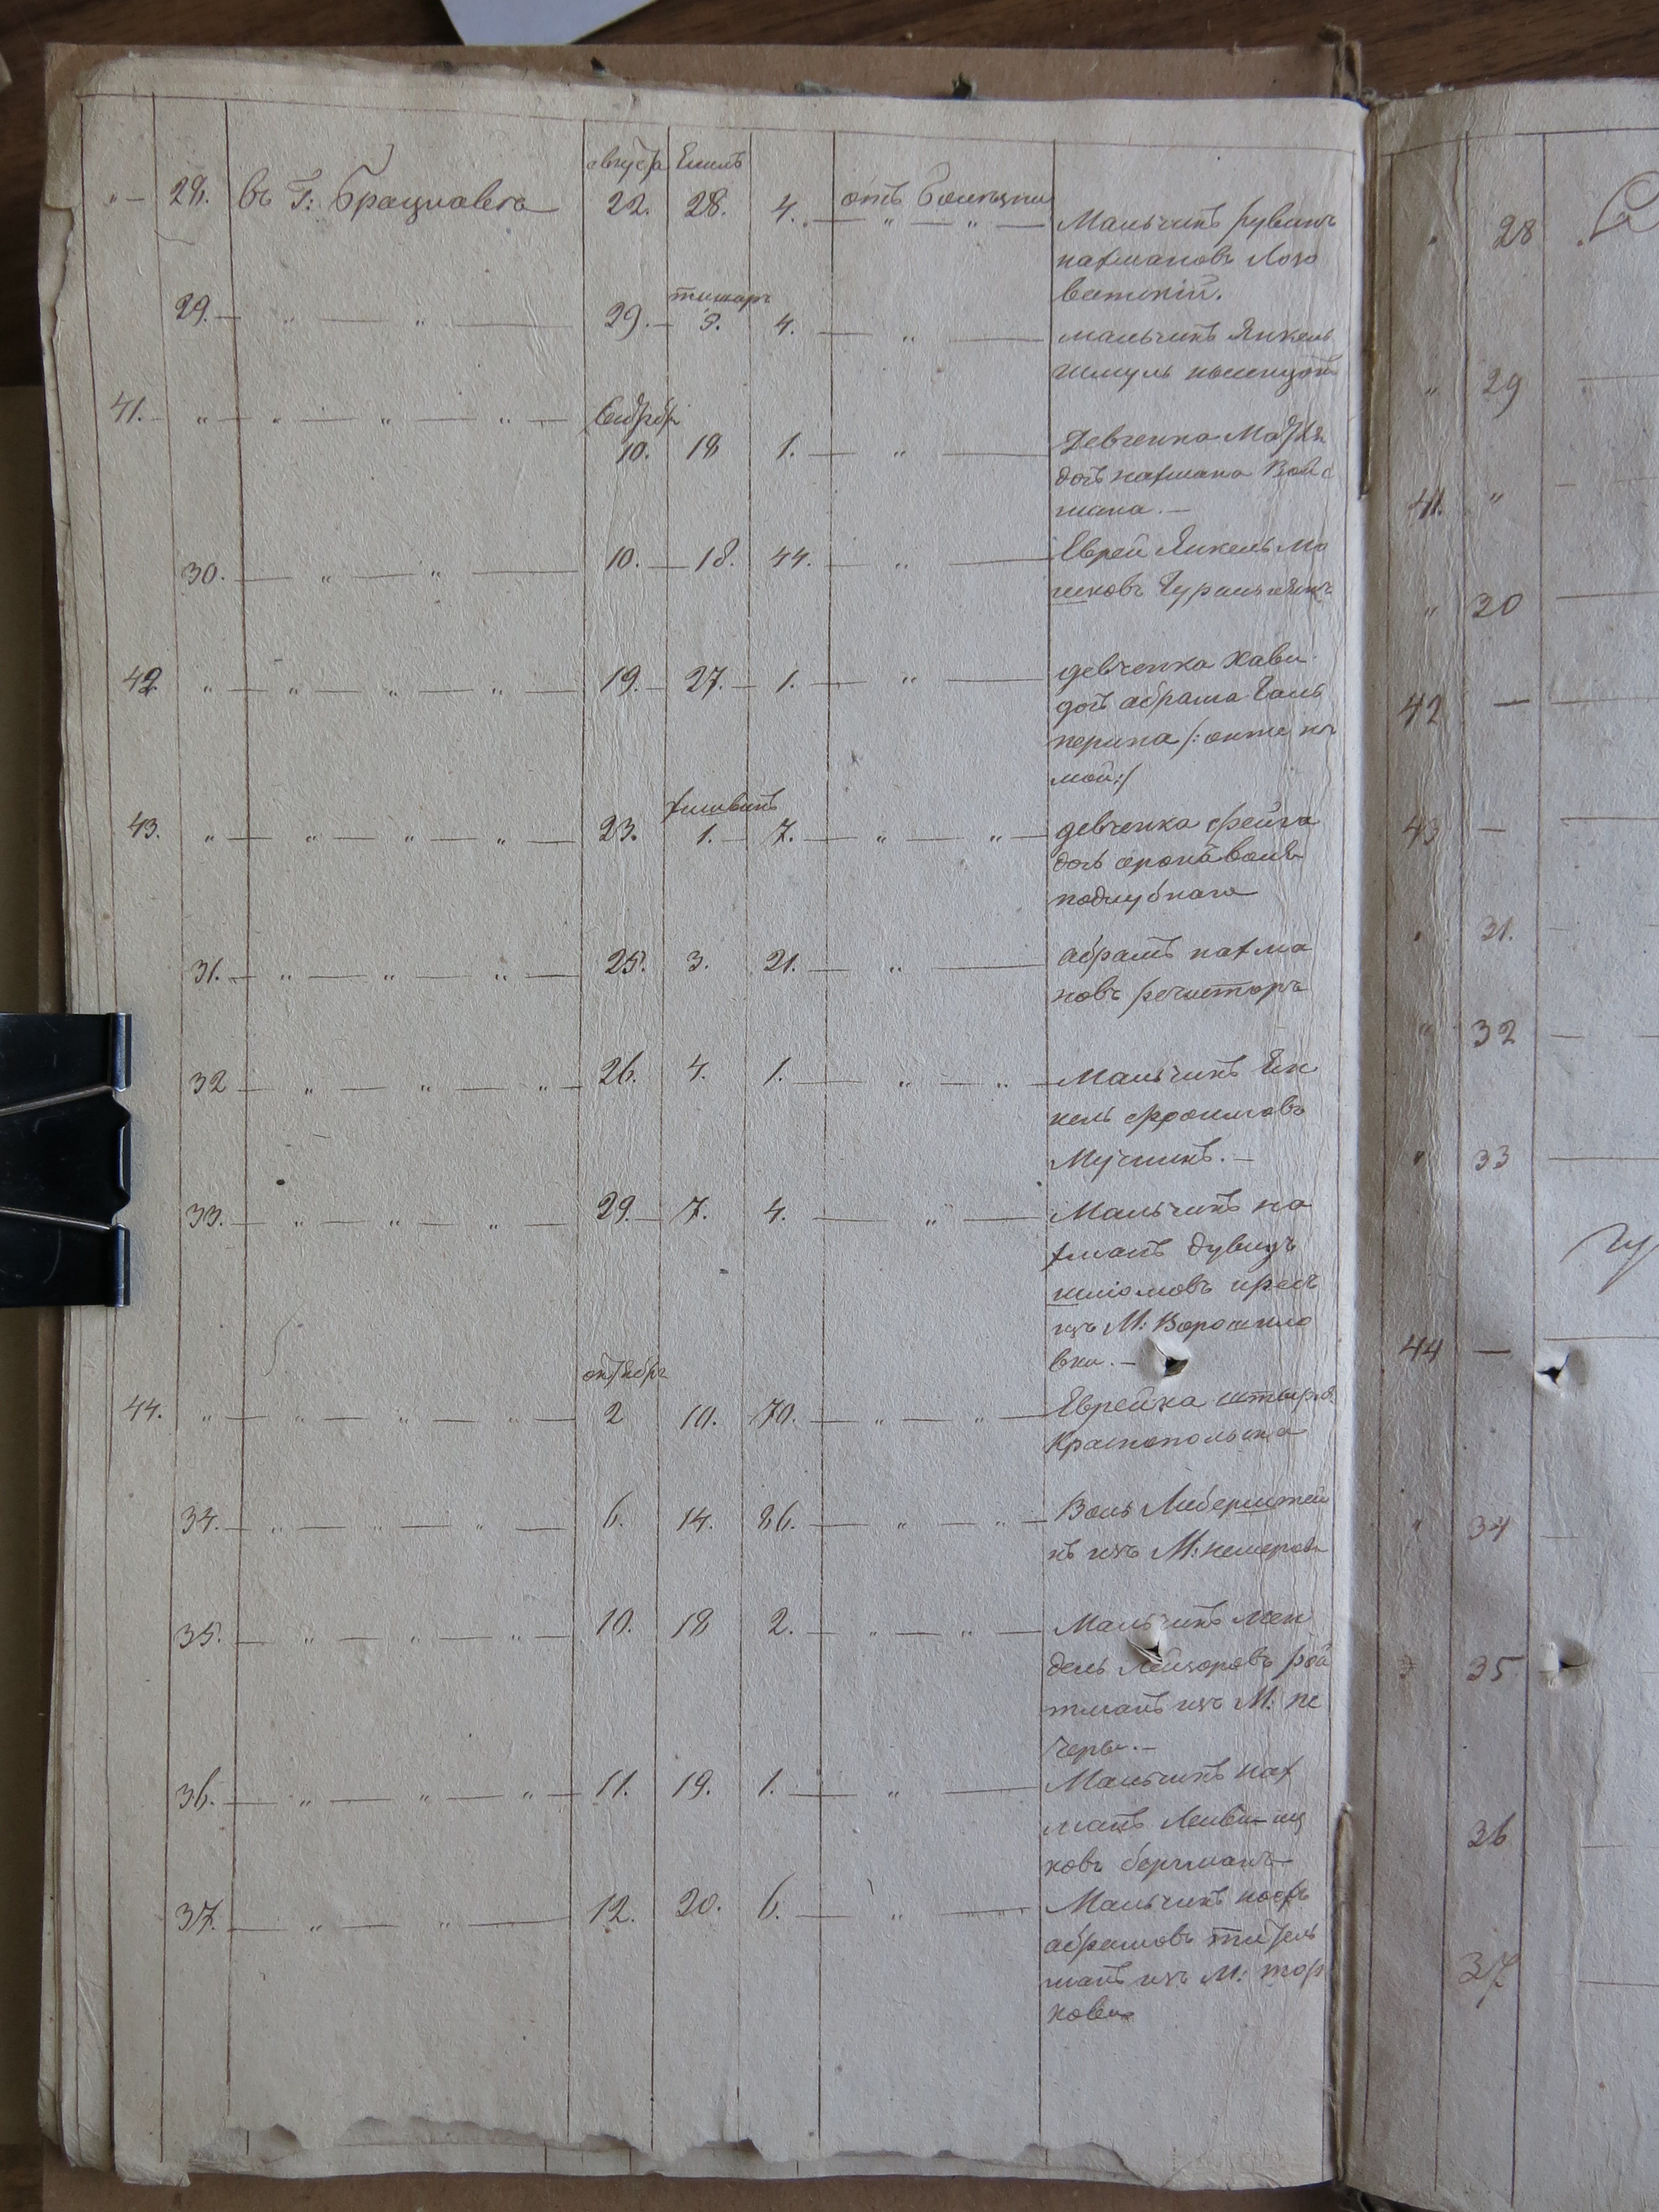 августа Елюль
28. въ Г: Брацлавле 22. 28. 4. отъ Болезни Мальчикъ рувинъ
нахмановъ Лозо
ватскій.
тишери
29. 29. 9. 4. мальчикъ Янкель
шмуль
41. Сентября
10. 18 1. Девченка
дочь нахмана Вай
мана.
30. 10. 18. 44. Еврей Янкель Мо
шковъ Гуральникъ
42. 19. 27. 1. девченка хава
дочь абрама Галь
перина
43. хишвинъ
23. 1. 7. девченка фейга
дочь аронъ вольв
подлубнаго
31. 25. 3. 21. абрамъ нахма
новъ речистеръ
32 26. 4. 1. Мальчикъ Ян
кель фроимовъ
Мучникъ.
33. 29. 7. 4. Мальчикъ на
хманъ дувидъ
шліомовъ
изъ М: Ворошило
вки.
октября
44. 2 10. 70. Еврейка
Краснопольска
34. 6. 14. 86. Воль Либерштей
нъ изъ М: немерова
35. 10. 18 2. Мальчикъ мен
дель Лейзоровъ рой
тманъ изъ М: пе
черы.
36. 11. 19. 1. Мальчикъ нах
манъ Лейви иц
ковъ бергманъ
37. 12. 20. 6. Мальчикъ
абрамовъ тител
манъ изъ М: тор
ковки
28
29
41.
30
42
43
31.
32
33
44
34
35
36
37